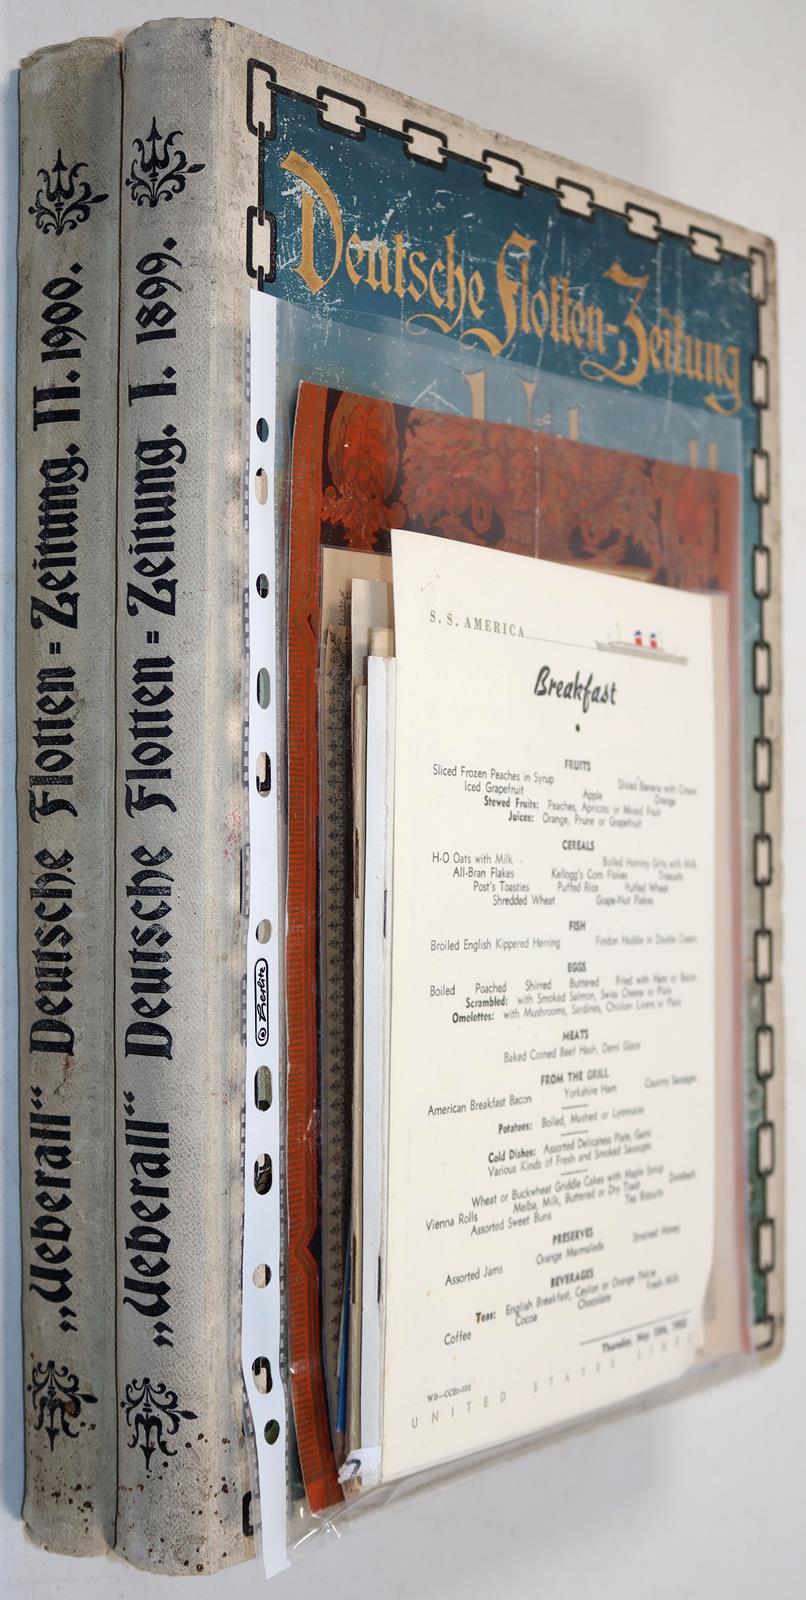 „Ueberall“ Deutsche Flotten=Zeitung. II. 1900.
„Ueberall“ Deutsche Flotten=Zeitung. I. 1899.
Deutsche Flotten-Zeitung
Herlitz
S. S. AMERICA
Breakfast
FRUITS
Sliced Frozen Peaches in Syrup Sliced Banana with Cream
Iced Grapefruit Apple Orange
Stewed Fruits: Peaches, Apricots or Mixed Fruit
Juices: Orange, Prune or Grapefruit
CEREALS
H-O Oats with Milk Boiled Hominy Grits with Milk
All-Bran Flakes Kellogg's Corn Flakes Triscuits
Post's Toasties Puffed Rice Puffed Wheat
Shredded Wheat Grape-Nut Flakes
FISH
Broiled English Kippered Herring Findon Haddie in Double Cream
EGGS
Boiled Poached Shirred Buttered Fried with Ham or Bacon
Scrambled: with Smoked Salmon, Swiss Cheese or Plain
Omelettes: with Mushrooms, Sardines, Chicken Livers or Plain
MEATS
Baked Corned Beef Hash, Demi Glace
FROM THE GRILL
American Breakfast Bacon Yorkshire Ham Country Sausages
Potatoes: Boiled, Mashed or Lyonnaise
Cold Dishes: Assorted Delicatess Plate, Garni
Various Kinds of Fresh and Smoked Sausages
Wheat or Buckwheat Griddle Cakes with Maple Syrup
Vienna Rolls Melba, Milk, Buttered or Dry Toast Zwieback
Assorted Sweet Buns Tea Biscuits
PRESERVES
Assorted Jams Orange Marmalade Strained Honey
BEVERAGES
Teas: English Breakfast, Ceylon or Orange Pekoe
Coffee Cocoa Chocolate Fresh Milk
Thursday, May
UNITED STATES LINES